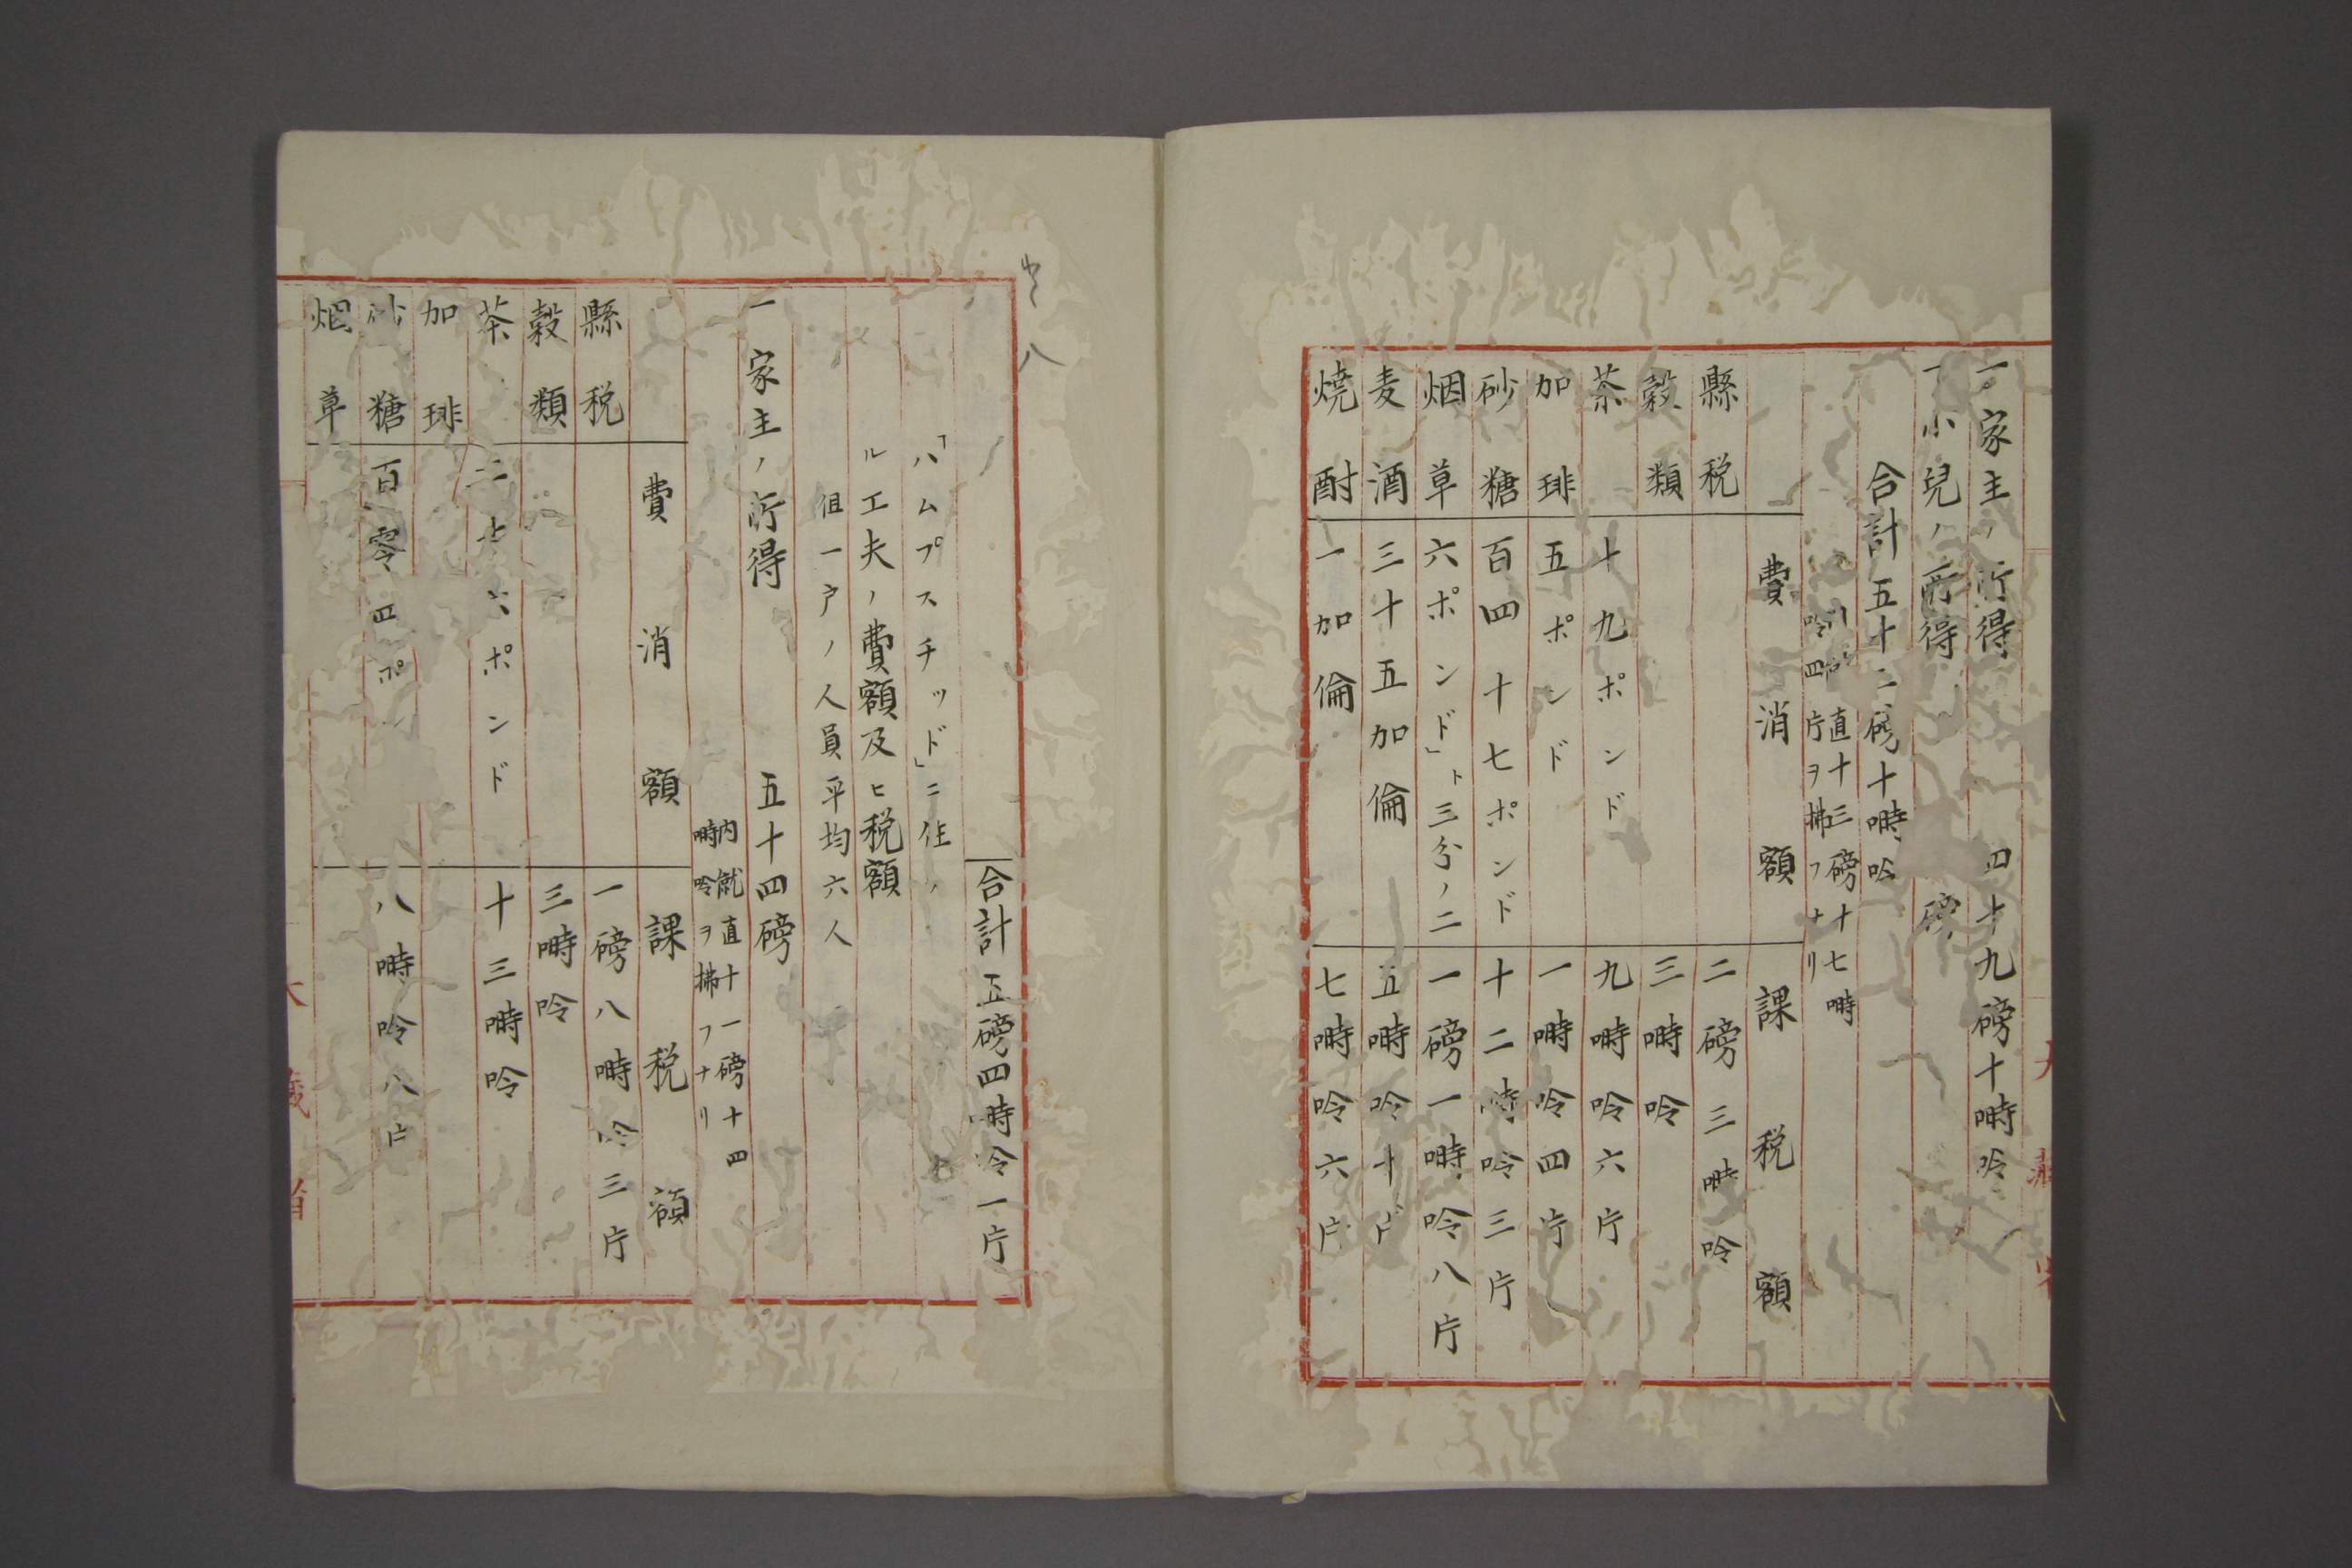 一家主ノ所得 四十九磅十嚉呤
一小兒ノ所得 磅
合計五十二磅十嚉呤
直十三磅十七嚉
呤四片ヲ拂フナリ
費消額 課税額
縣税 二磅三嚉呤
穀類 三嚉呤
茶 十九ポンド 九嚉呤六片
加琲 五ポンド 一嚉呤四片
砂糖 百四十七ポンド 十二嚉呤三片
烟草 六ポンド」ト三分ノ二 一磅一嚉呤八片
麦酒 三十五加倫 五嚉呤十片
焼酎 一加倫 七嚉呤六片
合計 五磅四嚉呤一片
「ハムプスチッド」ニ住
ル工夫ノ費額及ヒ税額
但一户ノ人員平均六人
一家主ノ所得 五十四磅
内僦直十一磅十四
嚉呤ヲ拂フナリ
費消額 課税額
縣税 一磅八嚉呤三片
穀類 三嚉呤
茶 二十六ポンド 十三嚉呤
加琲
砂糖 百零四ポン 八嚉呤八片
烟草